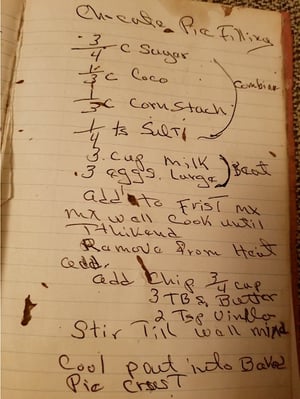 Ch-cate Pie Filling
3/4 c Sugar
1/3 c Coco
1/3 c Corn Stach
1/4 ts Salt
Combine
3 cup milk
3 eggs. Large
Beat
add to Frist mx
mx wall Cook until
Tthikend
Remove From Heat
add.
add Chip 3/4 cup
3 TBs Butter
2 Tsp Vinlla
Stir Till wall mixd
Cool part into Baked
Pie Crust